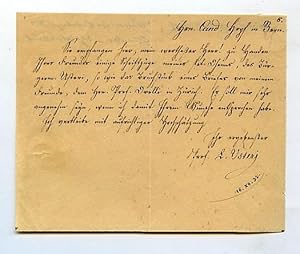 Hrn. And. Hopf in Bern.
Sie empfangen hier, mein werthester Herr! zu Handen
Ihrer Freunde einige Schriftzüge meines sel. Oheims, des Bür-
germ. Usteri, so wie das Bruchstük eines Briefes von meinem
Freunde, dem Hrn. Prof. Orelli in Zürich. Es soll mir sehr
angenehm seyn, wenn ich damit Ihrem Wunsche entsprochen habe.
Ich verharre mit aufrichtiger Hochschätzung
Ihr ergebenster
Prof. L. Usteri